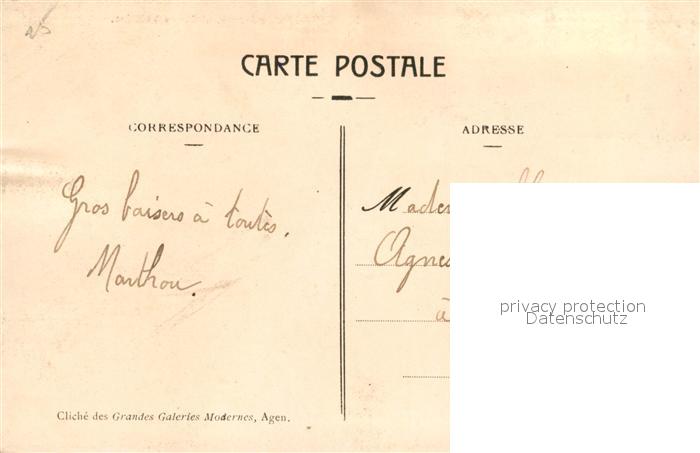 25
CARTE POSTALE
CORRESPONDANCE
ADRESSE
Gros baisers à toutes.
Marthou.
Mades
Agnes
à
privacy protection
Datenschutz
Cliché des Grandes Galeries Modernes, Agen.